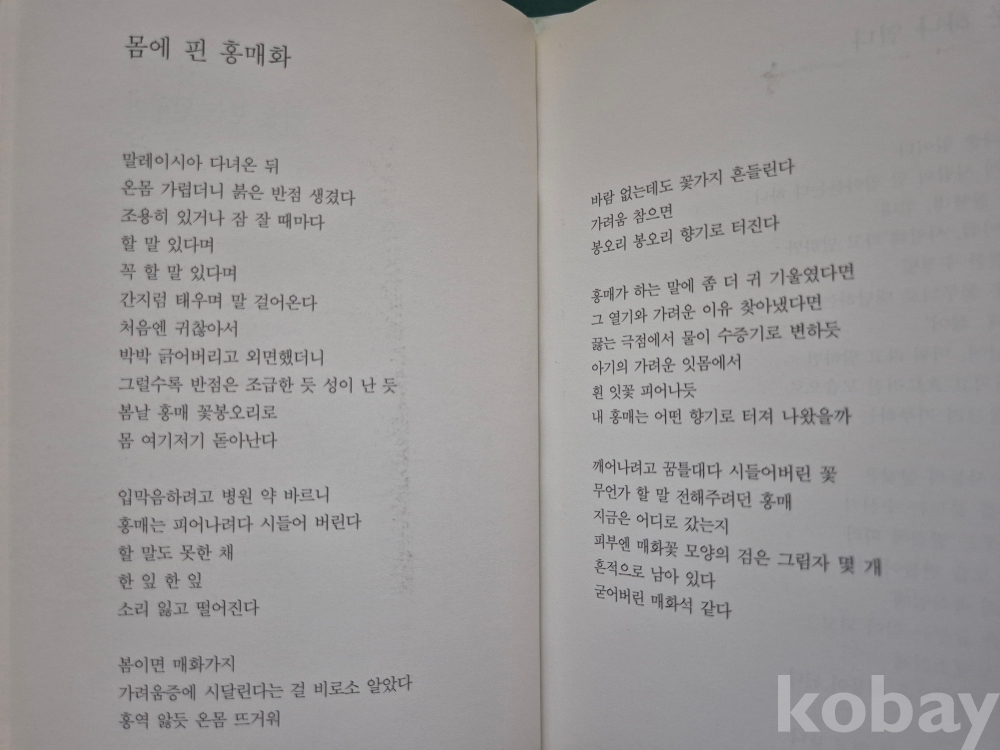 몸에 핀 홍매화
말레이시아 다녀온 뒤
온몸 가렵더니 붉은 반점 생겼다
조용히 있거나 잠 잘 때마다
할 말 있다며
꼭 할 말 있다며
간지럼 태우며 말 걸어온다
처음엔 귀찮아서
박박 긁어버리고 외면했더니
그럴수록 반점은 조급한 듯 성이 난 듯
봄날 홍매 꽃봉오리로
몸 여기저기 돋아난다
입막음하려고 병원 약 바르니
홍매는 피어나려다 시들어 버린다
할 말도 못한 채
한 잎 한 잎
소리 잃고 떨어진다
봄이면 매화가지
가려움증에 시달린다는 걸 비로소 알았다
홍역 앓듯 온몸 뜨거워
바람 없는데도 꽃가지 흔들린다
가려움 참으면
봉오리 봉오리 향기로 터진다
홍매가 하는 말에 좀 더 귀 기울였다면
그 열기와 가려운 이유 찾아냈다면
끓는 극점에서 물이 수증기로 변하듯
아기의 가려운 잇몸에서
흰 잇꽃 피어나듯
내 홍매는 어떤 향기로 터져 나왔을까
깨어나려고 꿈틀대다 시들어버린 꽃
무언가 할 말 전해주려던 홍매
지금은 어디로 갔는지
피부엔 매화꽃 모양의 검은 그림자 몇 개
흔적으로 남아 있다
굳어버린 매화석 같다
kobay